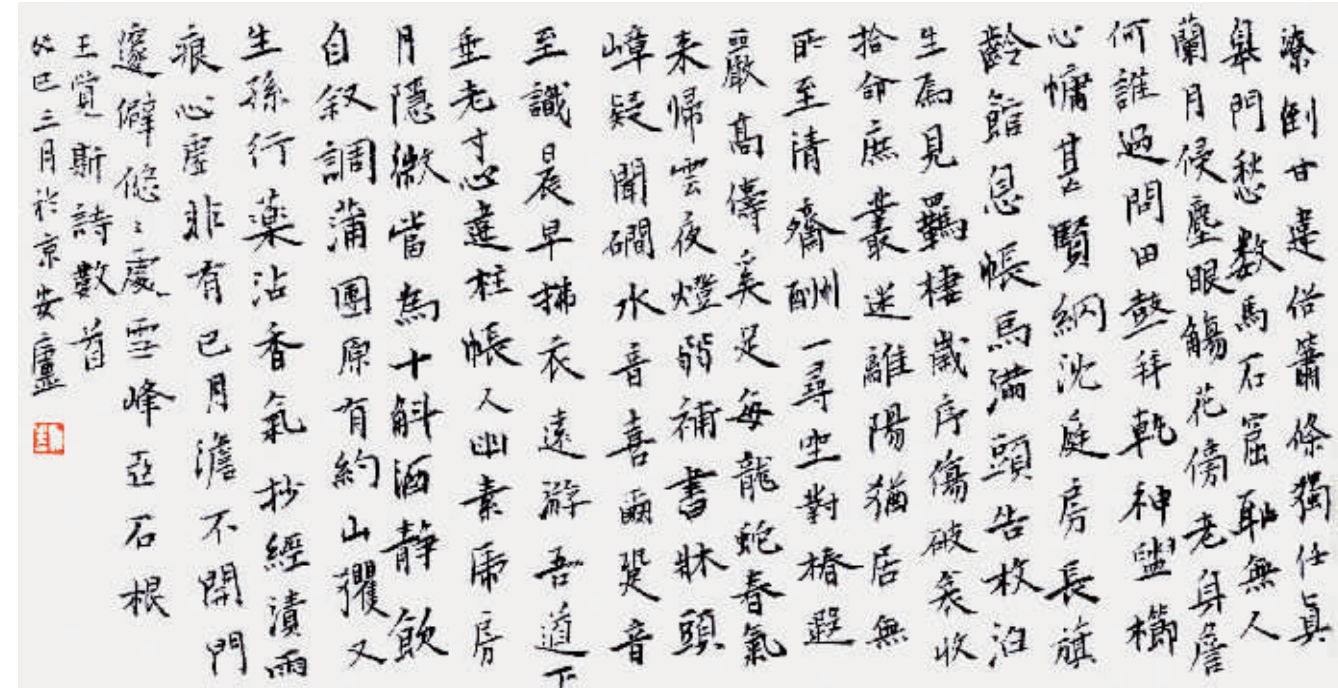 潦倒甘違俗簫條獨任真
鼻門愁數馬石窟恥無人
蘭月侵塵眼觴花傍老身詹
何誰過問田鼓拜乾神盥櫛
心慵甚賢網沈庭房長旗
齡館息帳馬满頭告枚泊
生爲見羈棲歲序傷破袁收
拾命庶叢迷離陽猶居無
所至清齋酬一尋坐對椿遐
高儔奚足每龍蛇春氣
来歸雲夜燈弱補書牀頭
嶂疑聞磵水音喜爾跫音
至識晨早拂衣遠游吾道下
垂老寸心違柱帳人幽素帚房
月隱微當爲十斛酒靜飲
自叙調蒲團原有約山玃又
生孫行藥沾香氣抄經漬雨
痕心虛非有已月澹不開門
邃僻悠〻處雪峰亞石根
王賞斯詩數首
巳三月於京安廬